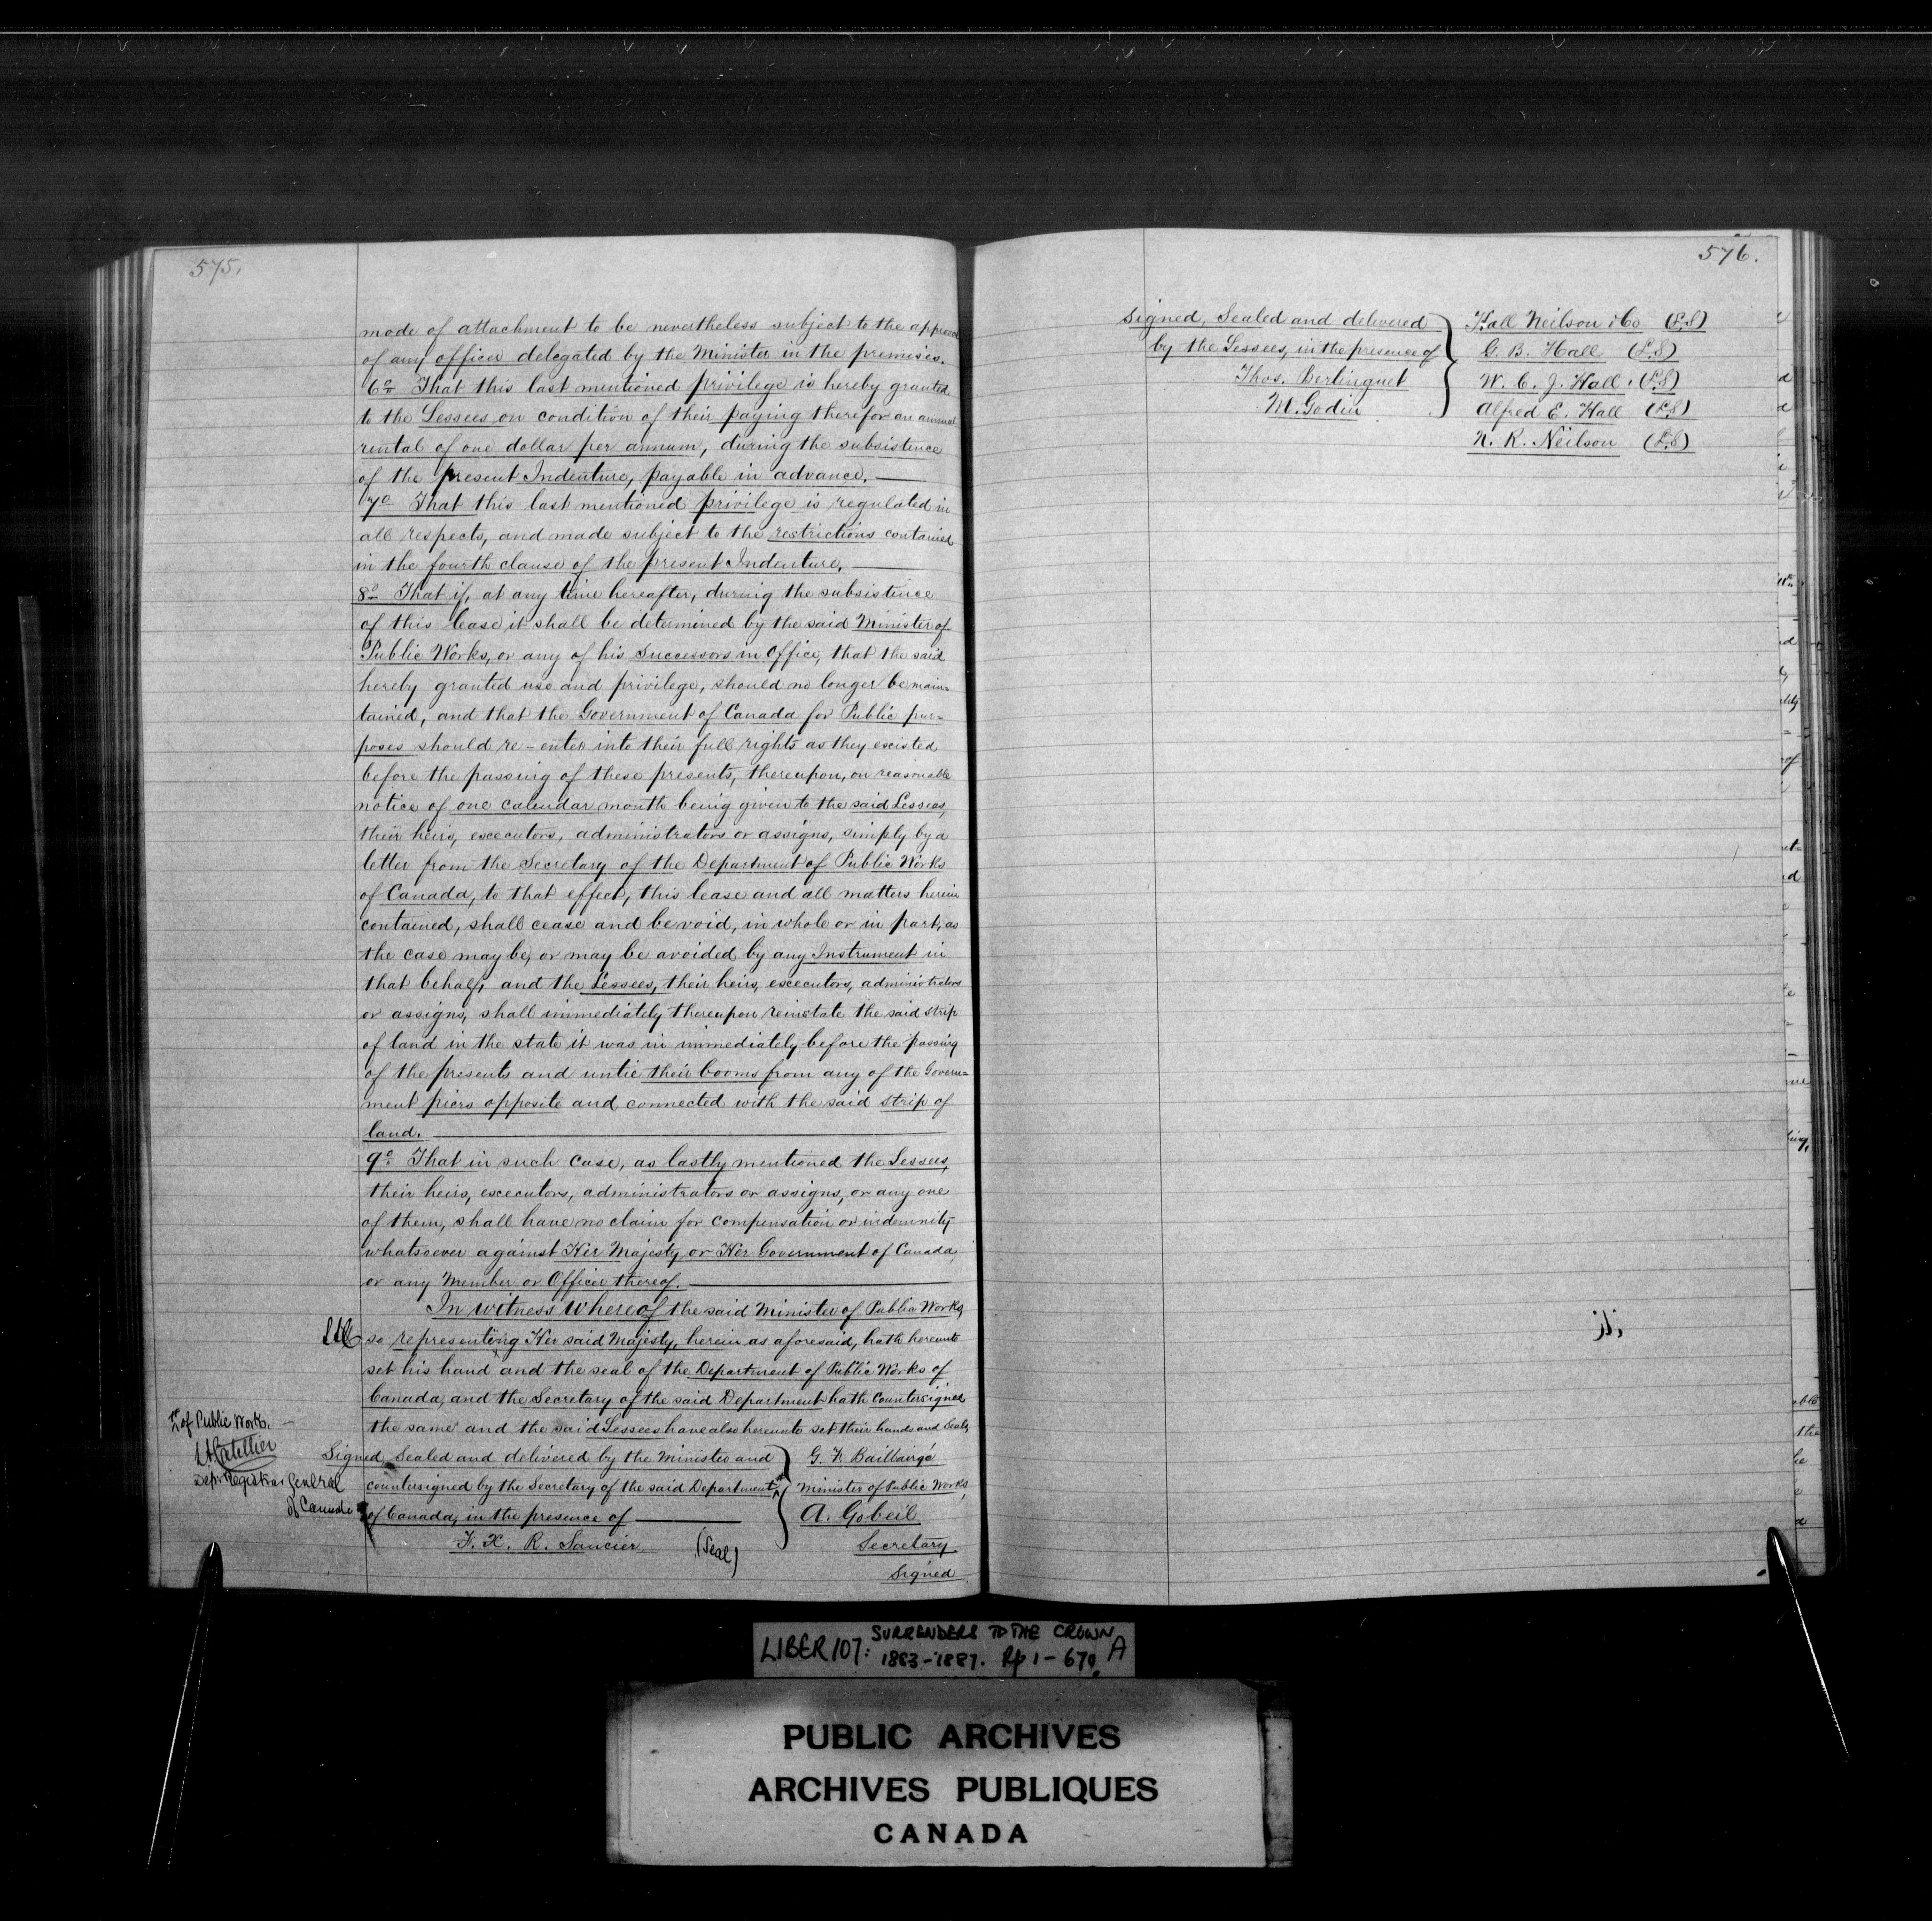 575.
mode of attachment to be nevertheless subject to the
of any officer delegated by the Minister in the premises.
6o That this last mentioned privilege is hereby granted
to the Lessees on condition of their paying therefor an annual
rental of one dollar per annum, during the subsistence
of the present Indenture, payable in advance.
7o That this last mentioned privilege is regulated in
all respects, and made subject to the restrictions contained
in the fourth clause of the present Indenture.
8o That if, at any time hereafter, during the subsistence
of this lease it shall be determined by the said Minister of
Public Works, or any of his Successors in Office, that the said
hereby granted use and privilege, should no longer be main=
tained, and that the Government of Canada for Public pur=
poses should re-enter into their full rights as they excisted
before the passing of these presents, thereupon, on reasonable
notice of one calendar month being given to the said Lessees,
their heirs, excecutors, administrators or assigns, simply by a
letter from the Secretary of the Department of Public Works
of Canada, to that effect, this lease and all matters herein
contained, shall cease and be void, in whole or in part, as
the case may be, or may be avoided by any Instrument in
that behalf; and the Lessees, their heirs, excecutors, administrators
or assigns, shall immediately thereupon reinstate the said strip
of land in the state it was in immediately before the passing
of the presents and untie their booms from any of the Govern=
ment piers opposite and connected with the said strip of
land.
9o That in such case, as lastly mentioned the Lessees,
their heirs, excecutors, administrators or assigns, or any one
of them, shall have no claim for compensation or indemnity
whatsoever against Her Majesty or Her Government of Canada,
or any Member or Officer thereof.
In witness whereof the said Minister of Public Works,
so representing Her said Majesty, herein as aforesaid, hath hereunto
set his hand and the seal of the Department of Public Works of
Canada, and the Secretary of the said Department hath Countersigned
the same and the said Lessees have also hereunto set their hands and Seals,
of Public Works.
Signed, Sealed and delivered by the Minister and
countersigned by the Secretary of the said Department
of Canada, in the presence of
F. X. R. Saucier.
(Seal)
G. F. Baillairgé
Minister of Public Works,
A. Gobeil
Secretary.
Signed
Depy Registrar General
of Canada
576.
Signed, Sealed and delivered
by the Lessees, in the presence of
Thos. Berlinguet
M. Godin
Hall Neilson & Co (L.S)
G. B. Hall (L.S)
W. C. J. Hall. (L.S)
Alfred E. Hall (L.S)
N. R. Neilson (L.S)
LIBER 107: SURRENDERS TO THE CROWN
1883-1887. Pp 1-670. A
PUBLIC ARCHIVES
ARCHIVES PUBLIQUES
CANADA